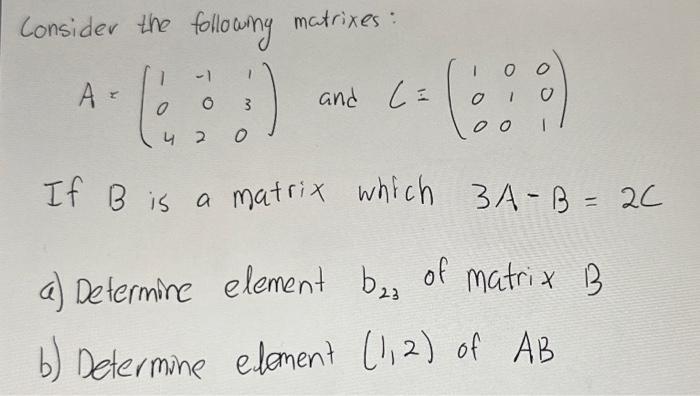 Consider the following matrixes:
A = (1 -1 1
0 0 3
4 2 0) and C = (1 0 0
0 1 0
0 0 1)
If B is a matrix which 3A - B = 2C
a) Determine element b₂₃ of matrix B
b) Determine element (1,2) of AB